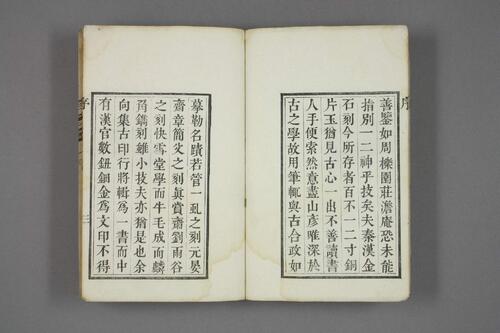 序
善鑒如周櫟園莊澹庵恐未能
指別一二神乎技矣夫秦漢金
石刻今所存者百不一二寸銅
片玉猶見古心一出不善讀書
人手便索然意盡山彥唯深於
古之學故用筆輒與古合政如
摹勒名蹟若管一虬之刻元晏
齋章簡父之刻眞賞齋劉雨谷
之刻快雪堂學而牛毛成而麟
角鐫刻雖小技夫亦猶是也余
向集古印行將輯為一書而中
有漢官數鈕鈿金為文印不得
序
三